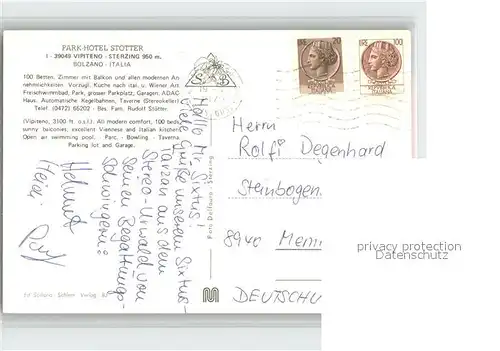 PARK-HOTEL STÖTTER
I - 39049 VIPITENO - STERZING 950 m.
BOLZANO - ITALIA
100 Betten. Zimmer mit Balkon und allen modernen An-
nehmlichkeiten. Vorzügl. Küche nach ital. u. Wiener Art
Freischwimmbad, Park, grosser Parkplatz, Garagen, ADAC
Haus. Automatische Kegelbahnen, Taverne (Stereokeller)
Telef. (0472) 65202 - Bes. Fam. Rudolf Stötter.
(Vipiteno, 3100 ft. o.s.l.). All modern comfort, 100 beds
sunny balconies, excellent Viennese and Italian kitchen
Open air swimming pool. - Parc. - Bowling - Taverna
Parking lot and Garage.
Hallo Mr. Sixtus!
Viele Grüße unserem Sixtus-
Tarzan aus dem
Stereo-Urwald von
Seinen Begattungs-
schwingern!
Helmut
Foto Dellauro - Sterzing
LIRE 20
LIRE 100
Herrn
Rolf Degenhard
Steinbogen
8940 Memm
DEUTSCHL
privacy protection
Datenschutz